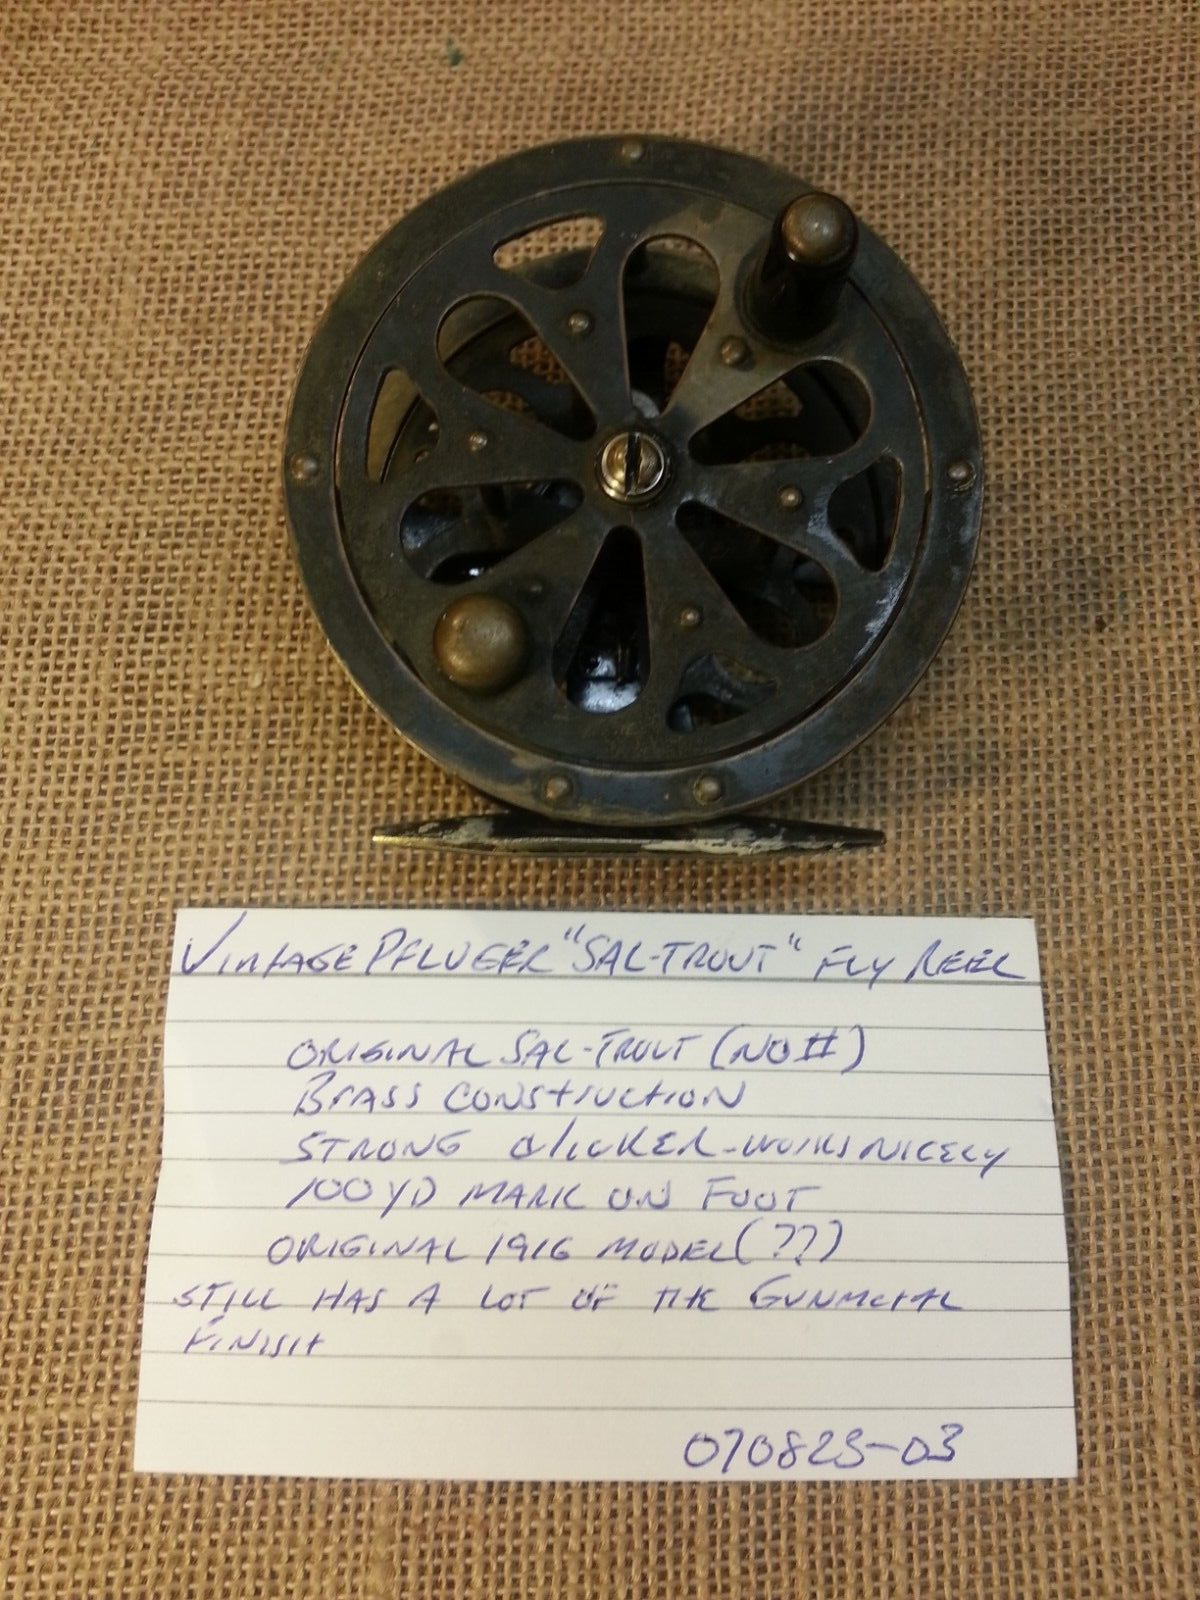 VINTAGE PFLUGER "SAL-TROUT" FLY REEL
ORIGINAL SAL-TROUT (NO#)
BRASS CONSTRUCTION
STRONG CLICKER-WORKS NICELY
100YD MARK ON FOOT
ORIGINAL 1916 MODEL (??)
STILL HAS A LOT OF THE GUNMETAL
FINISH
070823-03